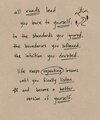 all roads lead
you back to yourself.
to the standards you
the boundaries you
the intuition you doubted.
life keeps repeating lessons
until you finally listen
and become a better
version of yourself.